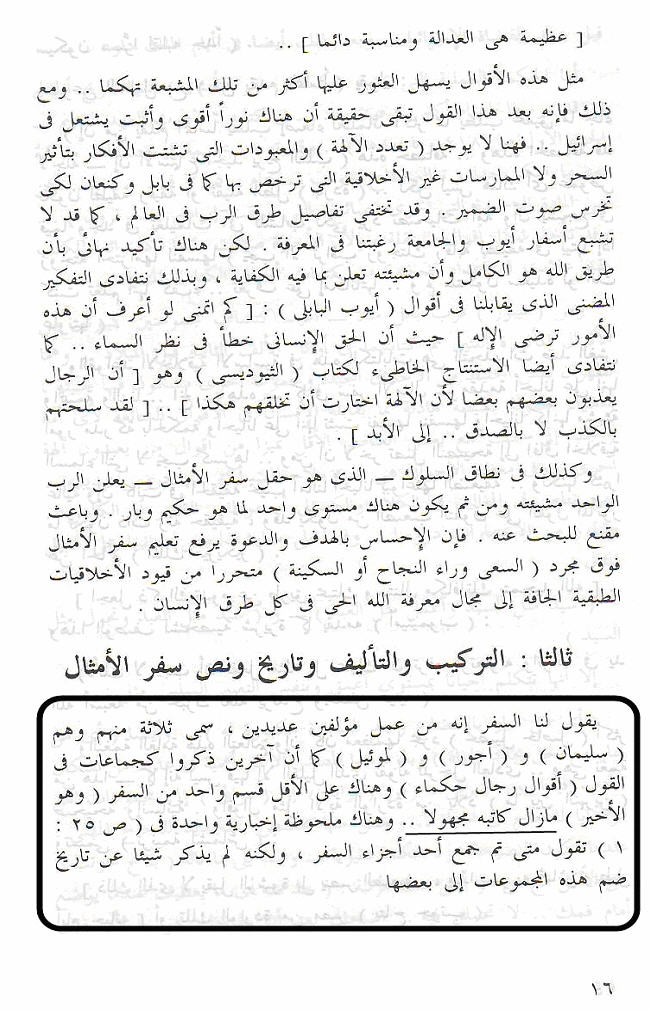 [ عظيمة هى العدالة ومناسبة دائما ] ..
مثل هذه الأقوال يسهل العثور عليها أكثر من تلك المشبعة تهكما .. ومع
ذلك فإنه بعد هذا القول تبقى حقيقة أن هناك نوراً أقوى وأثبت يشتعل فى
إسرائيل .. فهنا لا يوجد ( تعدد الآلهة ) والمعبودات التى تشتت الأفكار بتأثير
السحر ولا الممارسات غير الأخلاقية التى ترخص بها كما فى بابل وكنعان لكى
تخرس صوت الضمير . وقد تختفى تفاصيل طرق الرب فى العالم ، كما قد لا
تشبع أسفار أيوب والجامعة رغبتنا فى المعرفة . لكن هناك تأكيد نهائى بأن
طريق الله هو الكامل وأن مشيئته تعلن بما فيه الكفاية ، وبذلك نتفادى التفكير
المضنى الذى يقابلنا فى أقوال ( أيوب البابلى ) : [ كم اتمنى لو أعرف أن هذه
الأمور ترضى الإله ] حيث أن الحق الإنسانى خطأ فى نظر السماء .. كما
نتفادى أيضا الاستنتاج الخاطىء لكتاب ( الثيوديسى ) وهو [ أن الرجال
يعذبون بعضهم بعضا لأن الآلهة اختارت أن تخلقهم هكذا ] .. [ لقد سلحتهم
بالكذب لا بالصدق .. إلى الأبد ] .
وكذلك فى نطاق السلوك — الذى هو حقل سفر الأمثال — يعلن الرب
الواحد مشيئته ومن ثم يكون هناك مستوى واحد لما هو حكيم وبار . وباعث
مقنع للبحث عنه . فإن الإحساس بالهدف والدعوة يرفع تعليم سفر الأمثال
فوق مجرد ( السعى وراء النجاح أو السكينة ) متحررا من قيود الأخلاقيات
الطبقية الجافة إلى مجال معرفة الله الحى فى كل طرق الإنسان .
ثالثا : التركيب والتأليف وتاريخ ونص سفر الأمثال
يقول لنا السفر إنه من عمل مؤلفين عديدين ، سمى ثلاثة منهم وهم
( سليمان ) و ( أجور ) و ( لموئيل ) كما أن آخرين ذكروا كجماعات فى
القول ( أقوال رجال حكماء ) وهناك على الأقل قسم واحد من السفر ( وهو
الأخير ) مازال كاتبه مجهولا .. وهناك ملحوظة إخبارية واحدة فى ( ص ٢٥ :
١ ) تقول متى تم جمع أحد أجزاء السفر ، ولكنه لم يذكر شيئا عن تاريخ
ضم هذه المجموعات إلى بعضها
١٦